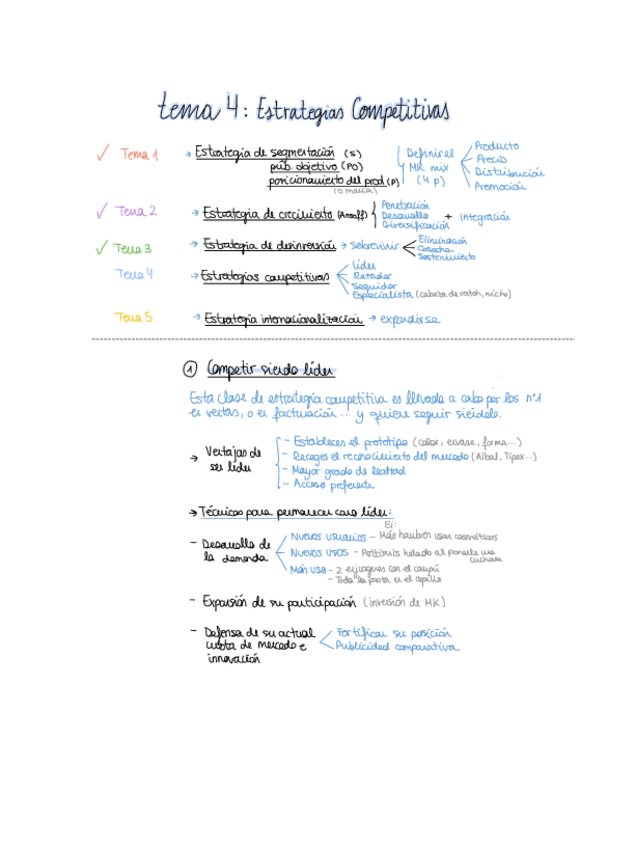 tema 4: Estrategias Competitivas
✓ Tema 1 → Estrategia de segmentación (S)
pub. objetivo (PO)
posicionamiento del prod (P)
(o marca)
Definir el
MK mix
(4 p)
Producto
Precio
Distribución
Promoción
✓ Tema 2 → Estrategia de crecimiento (Ansoff)
Penetración
Desarrollo
Diversificación
+ Integración
✓ Tema 3 → Estrategia de desinversión → Sobrevivir
Eliminación
Cosecha
Sostenimiento
Tema 4 → Estrategias competitivas
Líder
Retador
Seguidor
Especialista (cabeza de ratón, nicho)
Tema 5 → Estrategia internacionalización → expandirse
① Competir siendo líder
Esta clase de estrategia competitiva es llevada a cabo por los nº1
en ventas, o en facturación... y quiere seguir siéndolo.
→ Ventajas de
ser líder
- Estableces el prototipo (color, envase, forma...)
- Recoges el reconocimiento del mercado (Albal, Tipex...)
- Mayor grado de lealtad
- Acceso preferente
→ Técnicas para permanecer como líder:
- Desarrollo de
la demanda
Ej:
Nuevos usuarios - Más hombres usan cosméticos
Nuevos usos - Petitsuis helado al ponerle una
cuchara
Más uso - 2 enjuagues con el champú
- Toda la pasta en el cepillo
- Expansión de su participación (inversión de MK)
- Defensa de su actual
cuota de mercado e
innovación
Fortificar su posición
Publicidad comparativa